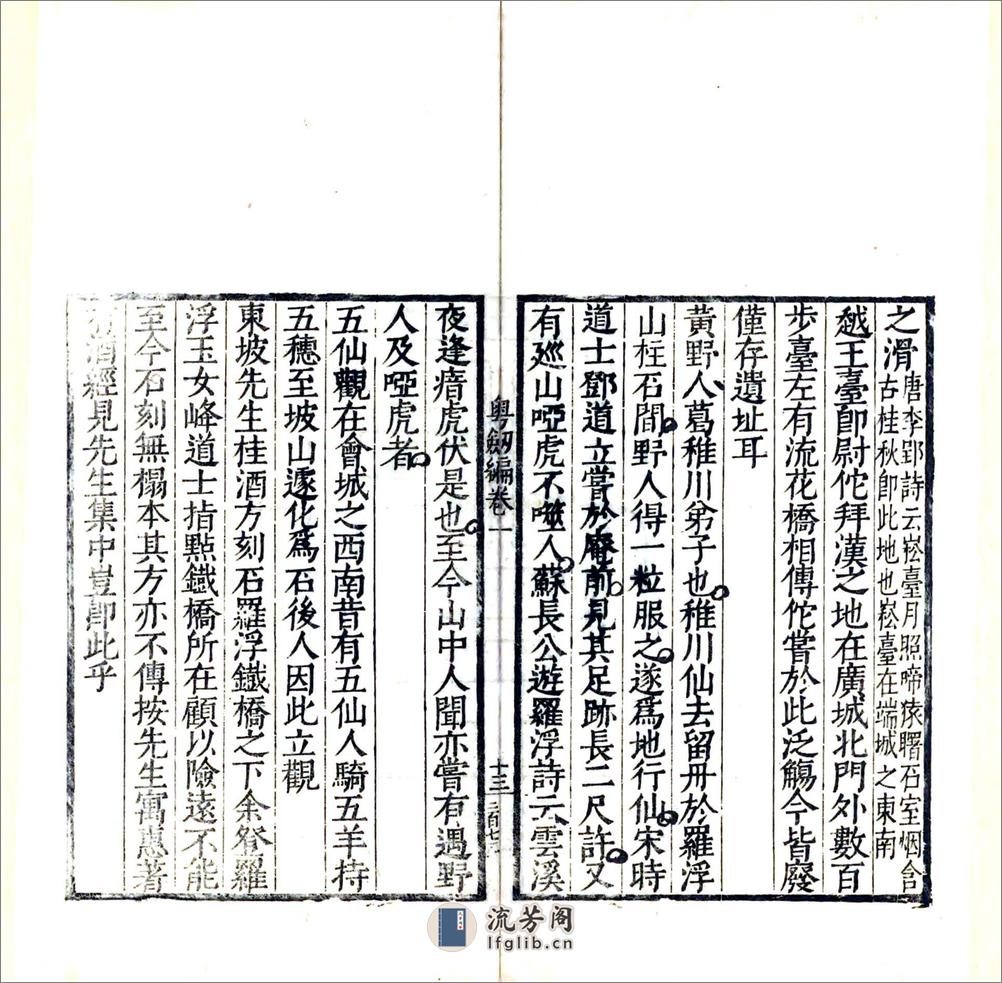 之滑唐李郢詩云崧臺月照啼猿曙石室烟含
古桂秋即此地也崧臺在端城之東南
越王臺即尉佗拜漢之地在廣城北門外數百
步臺左有流花橋相傳佗嘗於此泛觴今皆廢
僅存遺址耳
黃野人葛稚川弟子也稚川仙去留丹於羅浮
山柱石間野人得一粒服之遂為地行仙宋時
道士鄧道立嘗於庵前見其足跡長二尺許又
有廵山啞虎不噬人蘇長公遊羅浮詩云雲溪
粤劒編卷一
十三
夜逢瘖虎伏是也至今山中人聞亦嘗有遇野
人及啞虎者
五仙觀在會城之西南昔有五仙人騎五羊持
五穗至坡山遽化為石後人因此立觀
東坡先生桂酒方刻石羅浮鐵橋之下余登羅
浮玉女峰道士指點鐵橋所在顧以險遠不能
至今石刻無搨本其方亦不傳按先生寓惠著
有酒經見先生集中豈即此乎
流芳阁
lfglib.cn